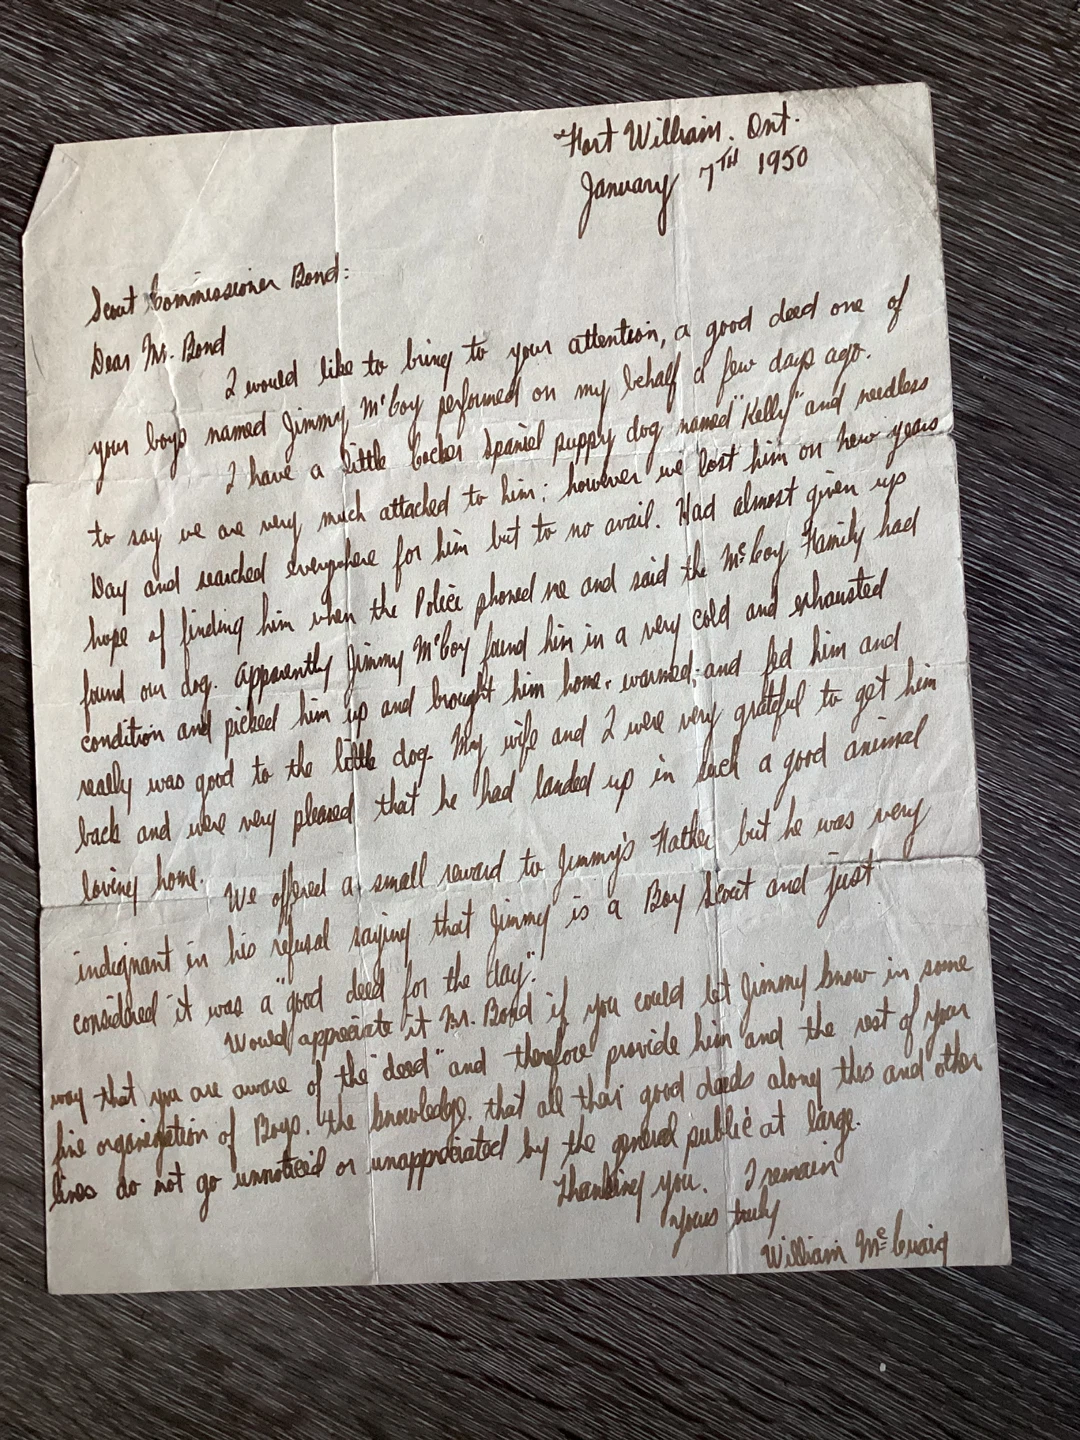 Fort William. Ont.
January 7TH 1950
Scout Commissioner Bond:
Dear Mr. Bond
I would like to bring to your attention, a good deed one of
your boys named Jimmy McCoy performed on my behalf a few days ago.
I have a little Cocker Spaniel puppy dog named "Kelly" and needless
to say we are very much attached to him; however we lost him on New Years
Day and searched everywhere for him but to no avail. Had almost given up
hope of finding him when the Police phoned me and said the McCoy Family had
found our dog. Apparently Jimmy McCoy found him in a very cold and exhausted
condition and picked him up and brought him home, warmed and fed him and
really was good to the little dog. My wife and I were very grateful to get him
back and were very pleased that he had landed up in such a good animal
loving home.
We offered a small reward to Jimmy's Father but he was very
indignant in his refusal saying that Jimmy is a Boy Scout and just
considered it was a "good deed for the day".
Would appreciate it Mr. Bond if you could let Jimmy know in some
way that you are aware of the "deed" and therefore provide him and the rest of your
fine organization of Boys, the knowledge, that all their good deeds along this and other
lines do not go unnoticed or unappreciated by the general public at large.
Thanking you. I remain
Yours truly
William McCuaig